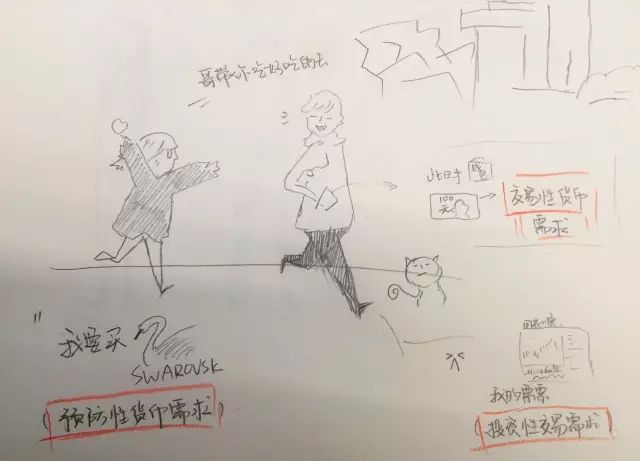 哥带你吃好吃的去
此时
100
元
交易性货币
需求
"
我要买
SWAROVSK
(预防性货币需求)
我的票票
(投资性交易需求)